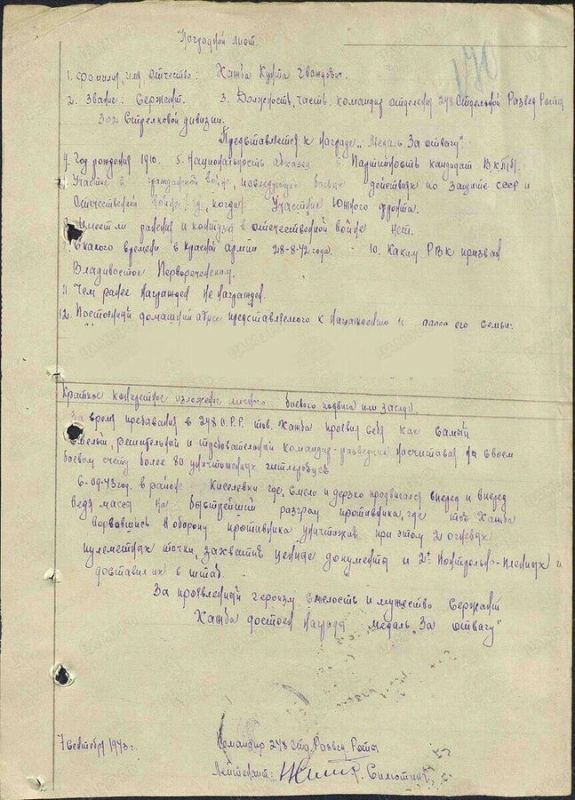 Наградной лист.
170
1. Фамилия, имя отчество: Хашба Кукта Гвандович.
2. Звание: Сержант. 3. Должность, часть. командир отделения 248 Отдельной Развед Роты
302 Стрелковой дивизии.
Представляется к награде „Медаль За отвагу".
4. Год рождения 1910. 5. Национальность абхазец 6. Партийность кандидат ВКП(б).
Участие в гражданской войне, последующих боевых действиях по защите СССР и
Отечественной войне, когда Участник Южного фронта.
Имеет ли ранения и контузии в отечественной войне нет.
С какого времени в Красной армии 28-8-42 года. 10. Каким РВК призван
Владивосток Первореченским.
11. Чем ранее награжден не награжден.
12. Постоянный домашний адрес представляемого к награждению и его семьи:
Краткое конкретное изложение личного боевого подвига или заслуг.
За время пребывания в 248 О.Р.Р. тов. Хашба проявил себя как самый
смелый, решительный и требовательный командир-разведчик насчитывая на своем
боевом счету более 80 уничтоженных гитлеровцев.
6-09-43 год. в районе Киселевки где, смело и дерзко продвигался вперед и вперед
ведя массы на быстрейший разгром противника, где тов Хашба
ворвавшись в оборону противника уничтожив при этом 2 огневых
пулеметных точки, захватив ценные документы и 2х контрольно-пленных и
доставил их в штаб.
За проявленный героизм смелость и мужество Сержант
Хашба достоин награды „медаль „За отвагу"
7 Сентября 1943г. Командир 248 отд. Развед. Роты
Лейтенант: